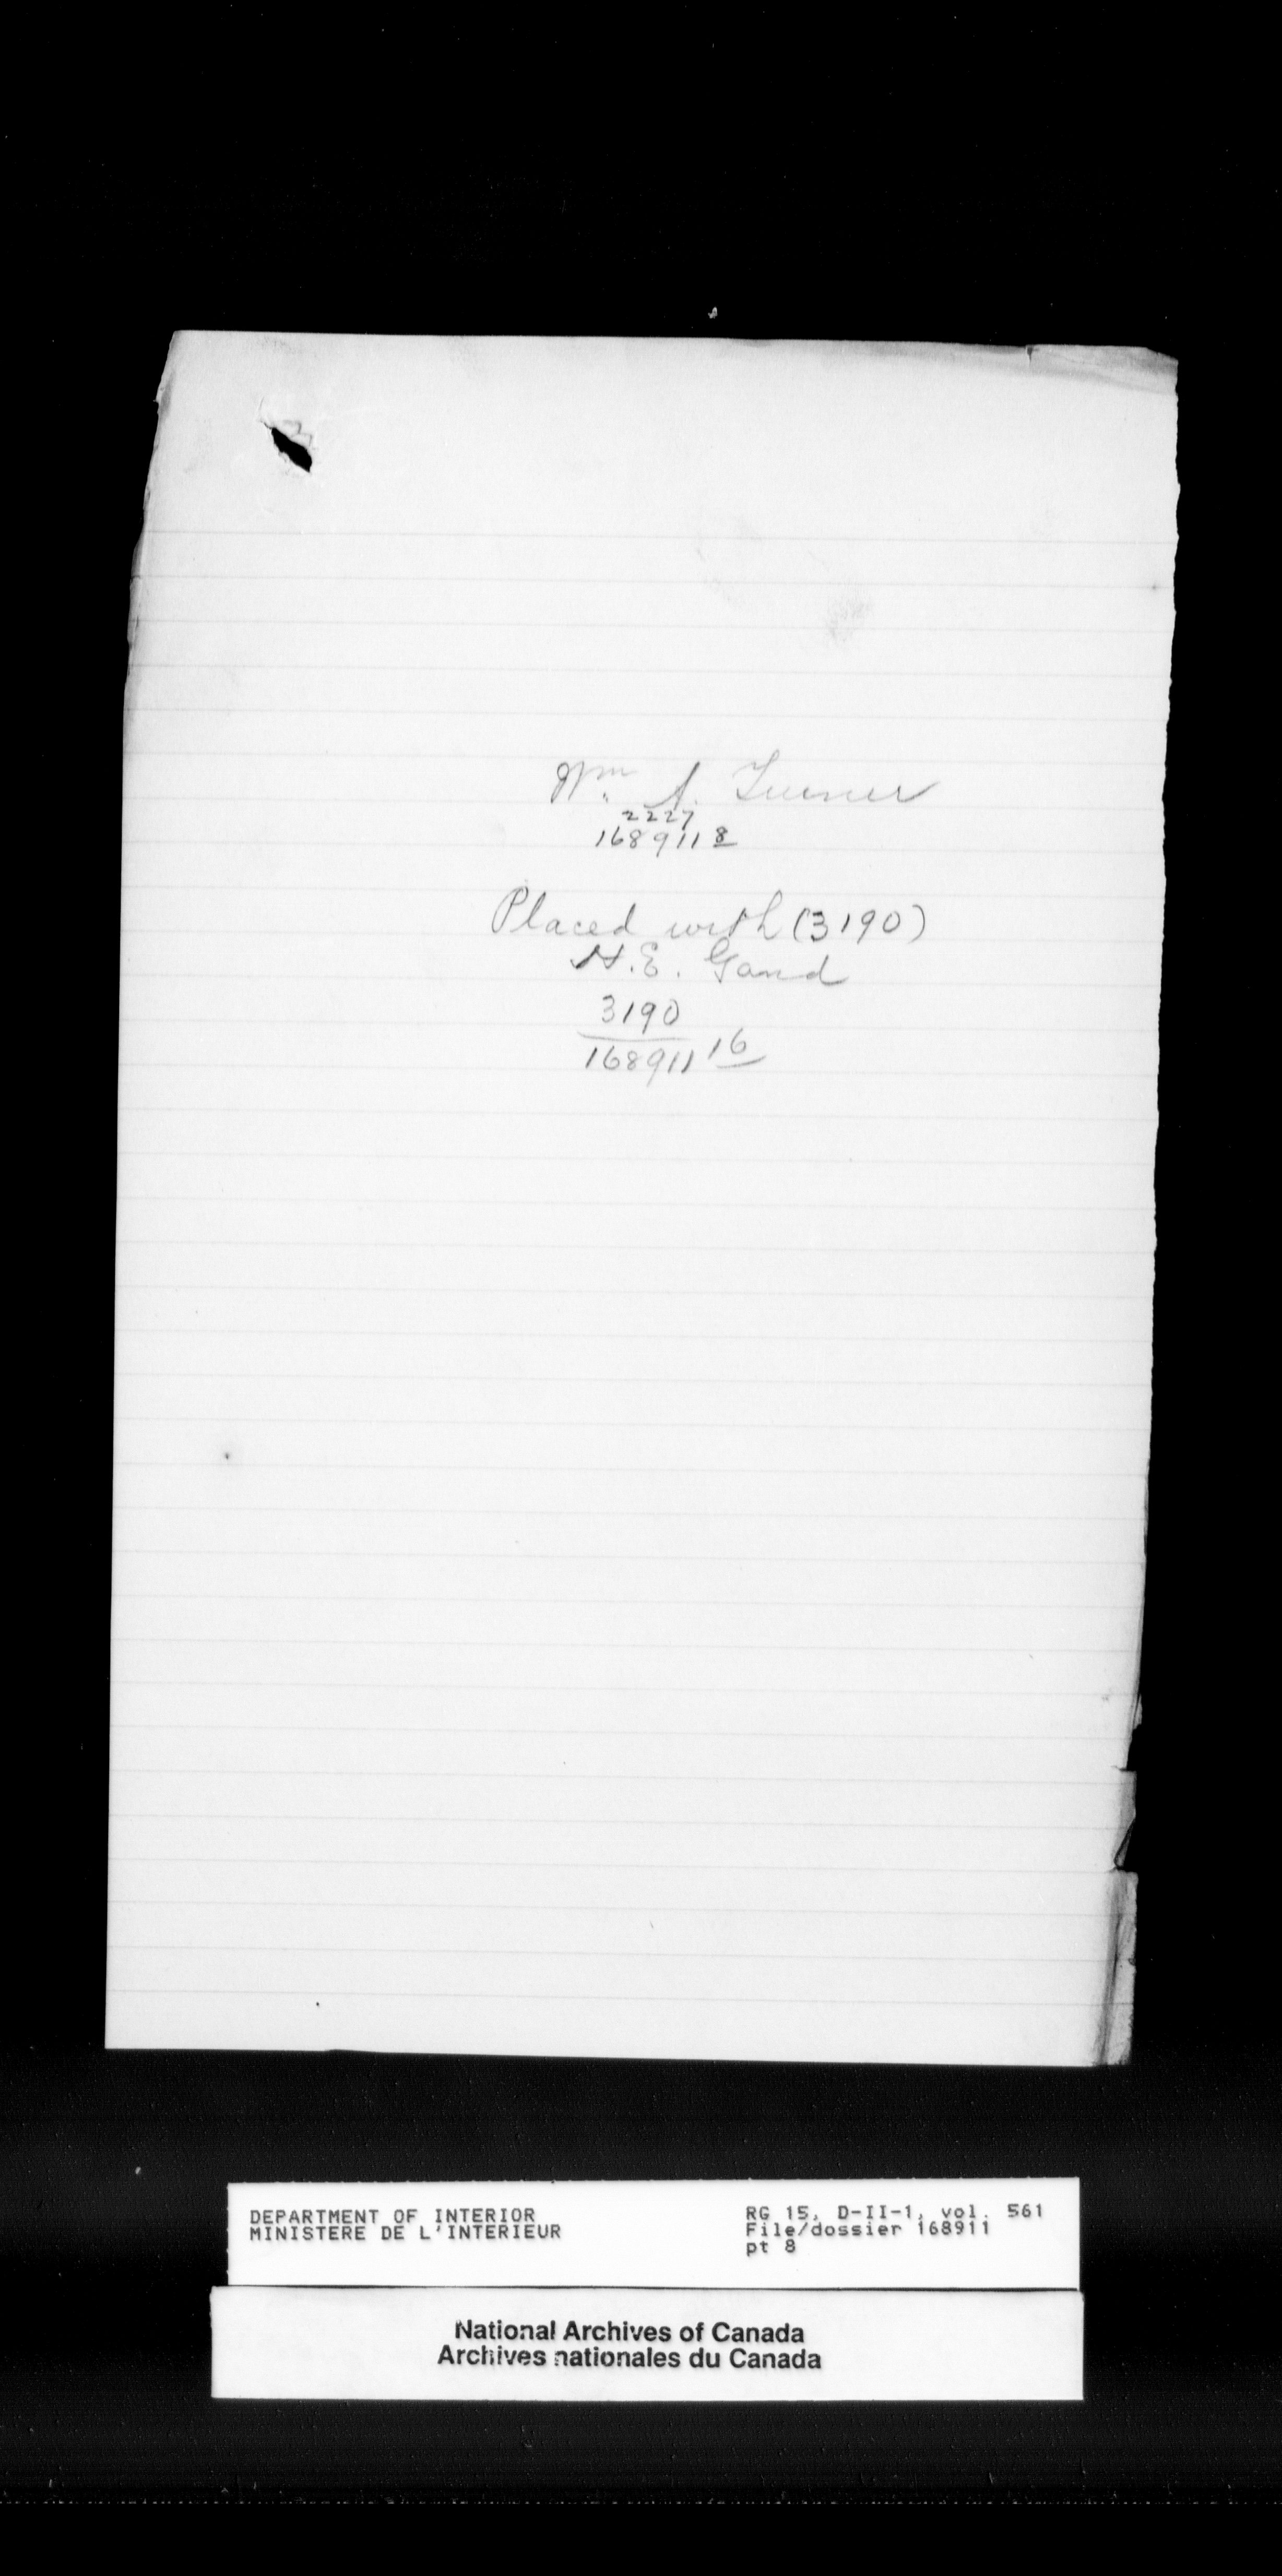 Wm. A. Turner
2227
168911 8
Placed with (3190)
H. E. Gand
3190
168911 16
DEPARTMENT OF INTERIOR
MINISTERE DE L'INTERIEUR
RG 15, D-II-1, vol. 561
File/dossier 168911
pt 8
National Archives of Canada
Archives nationales du Canada